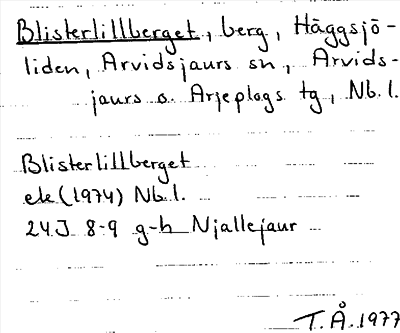 Blisterlillberget, berg, Häggsjö-
liden, Arvidsjaurs sn, Arvids-
jaurs o. Arjeplogs tg, Nb. l.
Blisterlillberget
ek (1974) Nb. l.
24J 8-9 g-h Njallejaur
T.Å. 1977